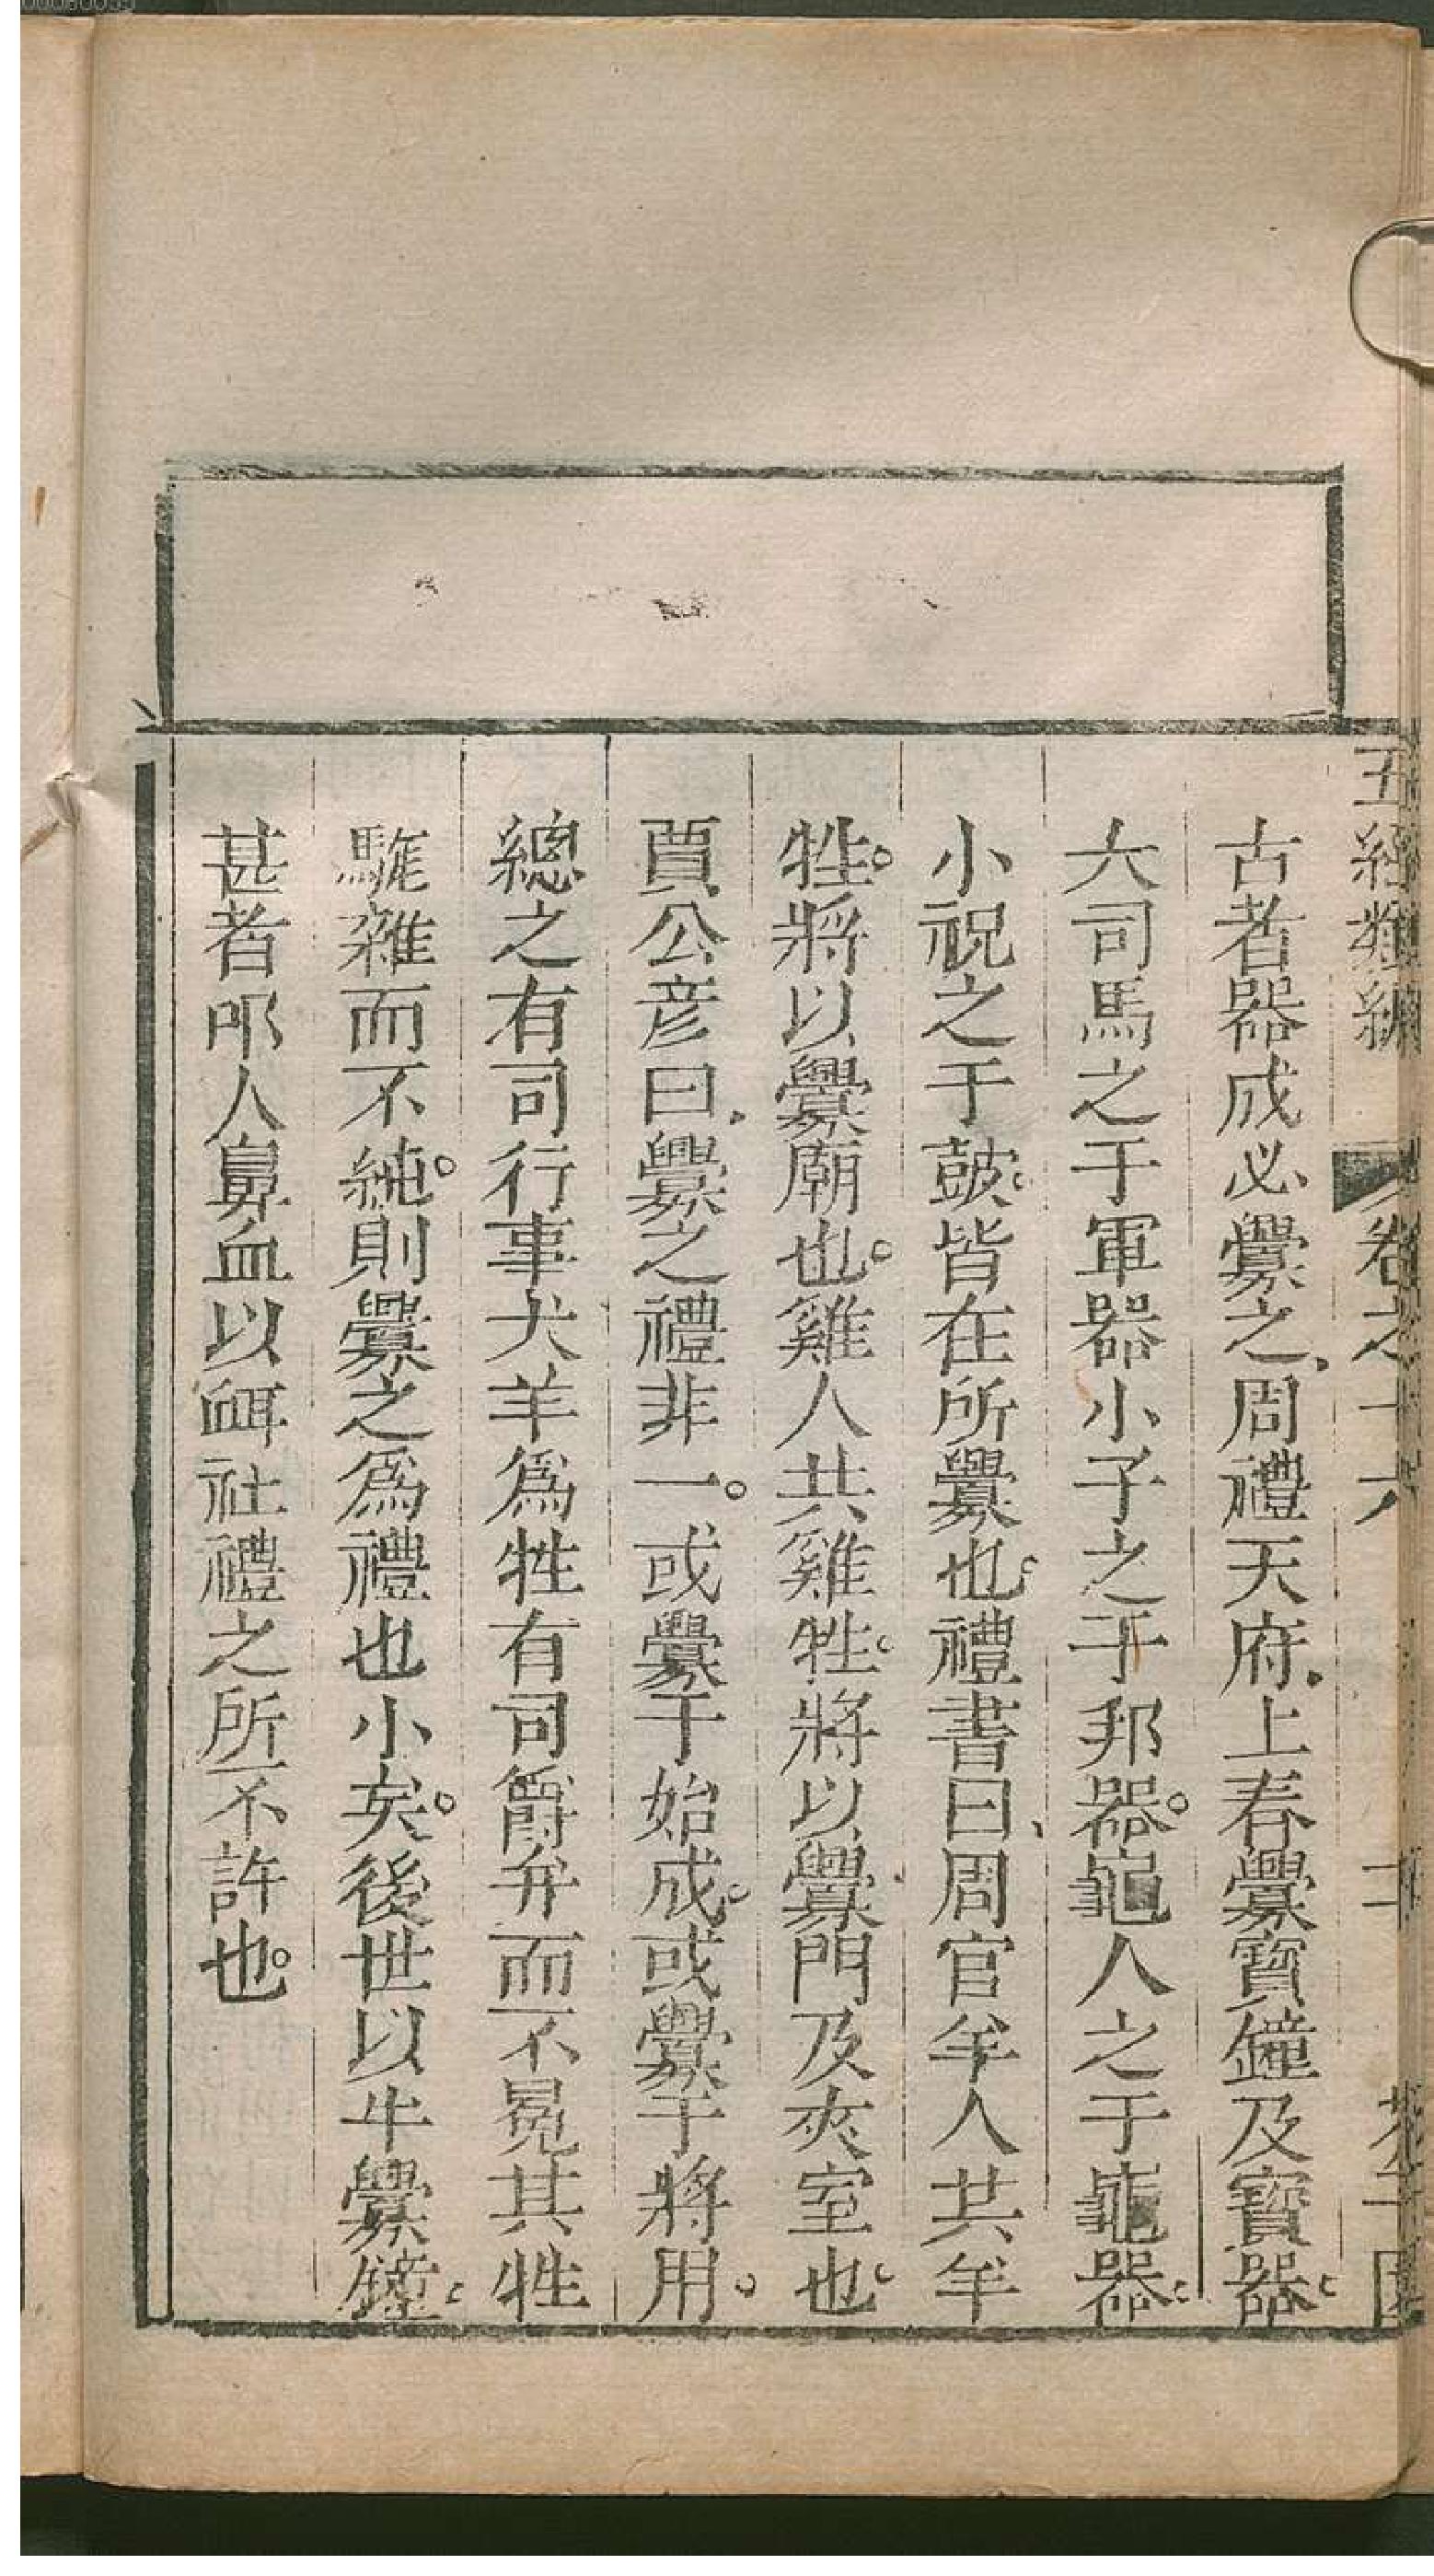 五經類編
卷之十六
古者器成必釁之、周禮天府、上春釁寶鐘及寶器。
大司馬之于軍器小子之于邦器。龜人之于龜器。
小祝之于鼓。皆在所釁也。禮書曰、周官羊人共羊
牲。將以釁廟也。雞人共雞牲。將以釁門及夾室也。
賈公彥曰、釁之禮非一。或釁于始成。或釁于將用。
總之有司行事犬羊爲牲有司爵弁而不冕其牲
駹雜而不純。則釁之爲禮也小矣。後世以牛釁鐘。
甚者叩人鼻血以衈社禮之所不許也。